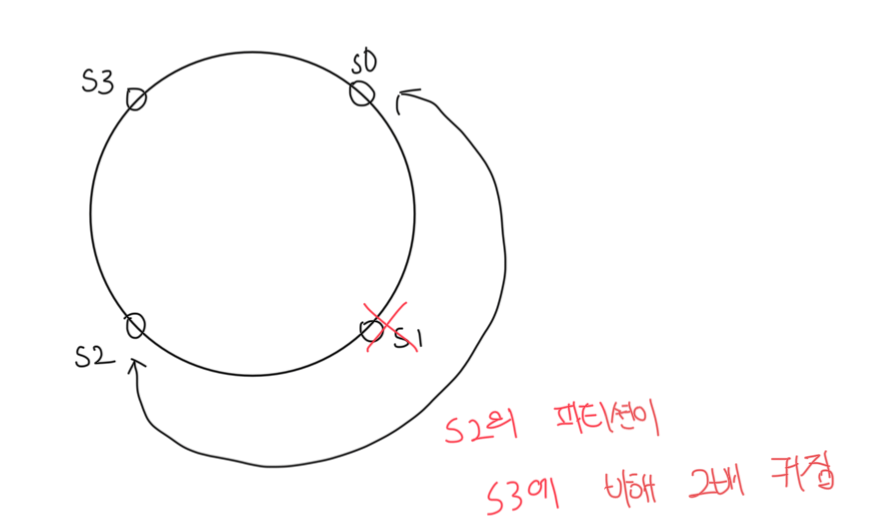 S0
S3
S1
S2
S2의 파티션이
S3에 비해 2배 커짐